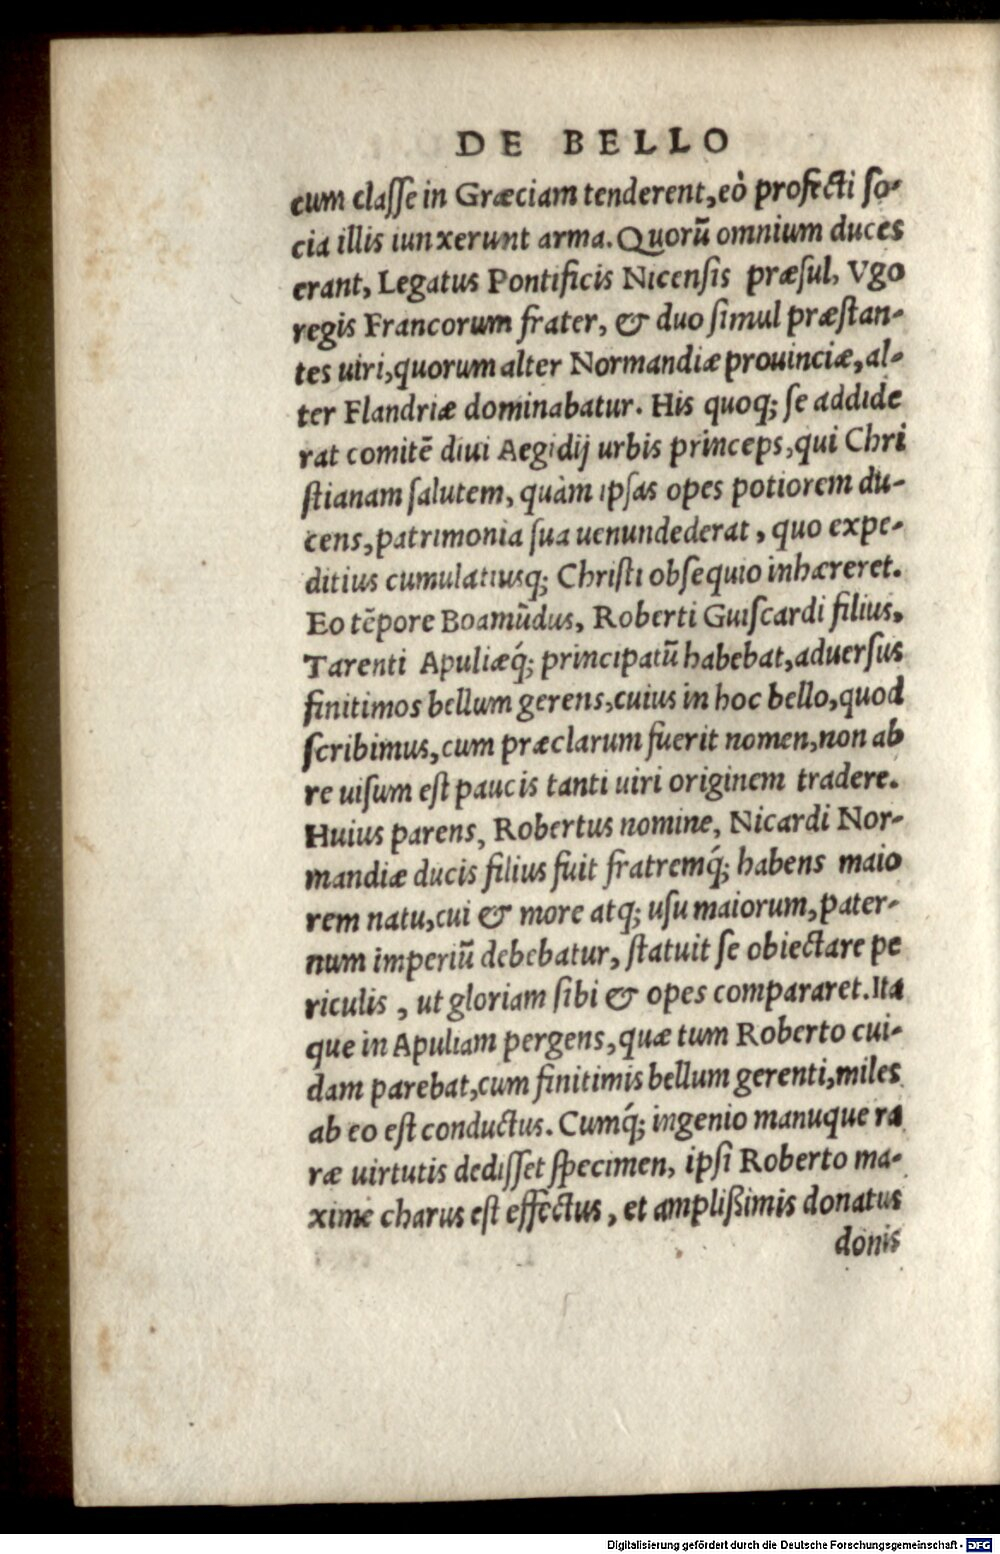 DE BELLO
cum classe in Græciam tenderent, eò profecti so-
cia illis iunxerunt arma. Quorũ omnium duces
erant, Legatus Pontificis Nicensis præsul, Vgo
regis Francorum frater, & duo simul præstan-
tes uiri, quorum alter Normandiæ prouinciæ, al-
ter Flandriæ dominabatur. His quoq; se addide
rat comitẽ diui Aegidij urbis princeps, qui Chri
stianam salutem, quàm ipsas opes potiorem du-
cens, patrimonia sua uenundederat, quo expe-
ditius cumulatiusq; Christi obsequio inhæreret.
Eo tẽpore Boamũdus, Roberti Guiscardi filius,
Tarenti Apuliæq́; principatũ habebat, aduersus
finitimos bellum gerens, cuius in hoc bello, quod
scribimus, cum præclarum fuerit nomen, non ab
re uisum est paucis tanti uiri originem tradere.
Huius parens, Robertus nomine, Nicardi Nor-
mandiæ ducis filius fuit fratremq́; habens maio
rem natu, cui & more atq; usu maiorum, pater-
num imperiũ debebatur, statuit se obiectare pe
riculis, ut gloriam sibi & opes compararet. Ita
que in Apuliam pergens, quæ tum Roberto cui-
dam parebat, cum finitimis bellum gerenti, miles
ab eo est conductus. Cumq́; ingenio manuque ra
ræ uirtutis dedisset specimen, ipsi Roberto ma-
xime charus est effectus, et amplißimis donatus
donis
Digitalisierung gefördert durch die Deutsche Forschungsgemeinschaft - DFG